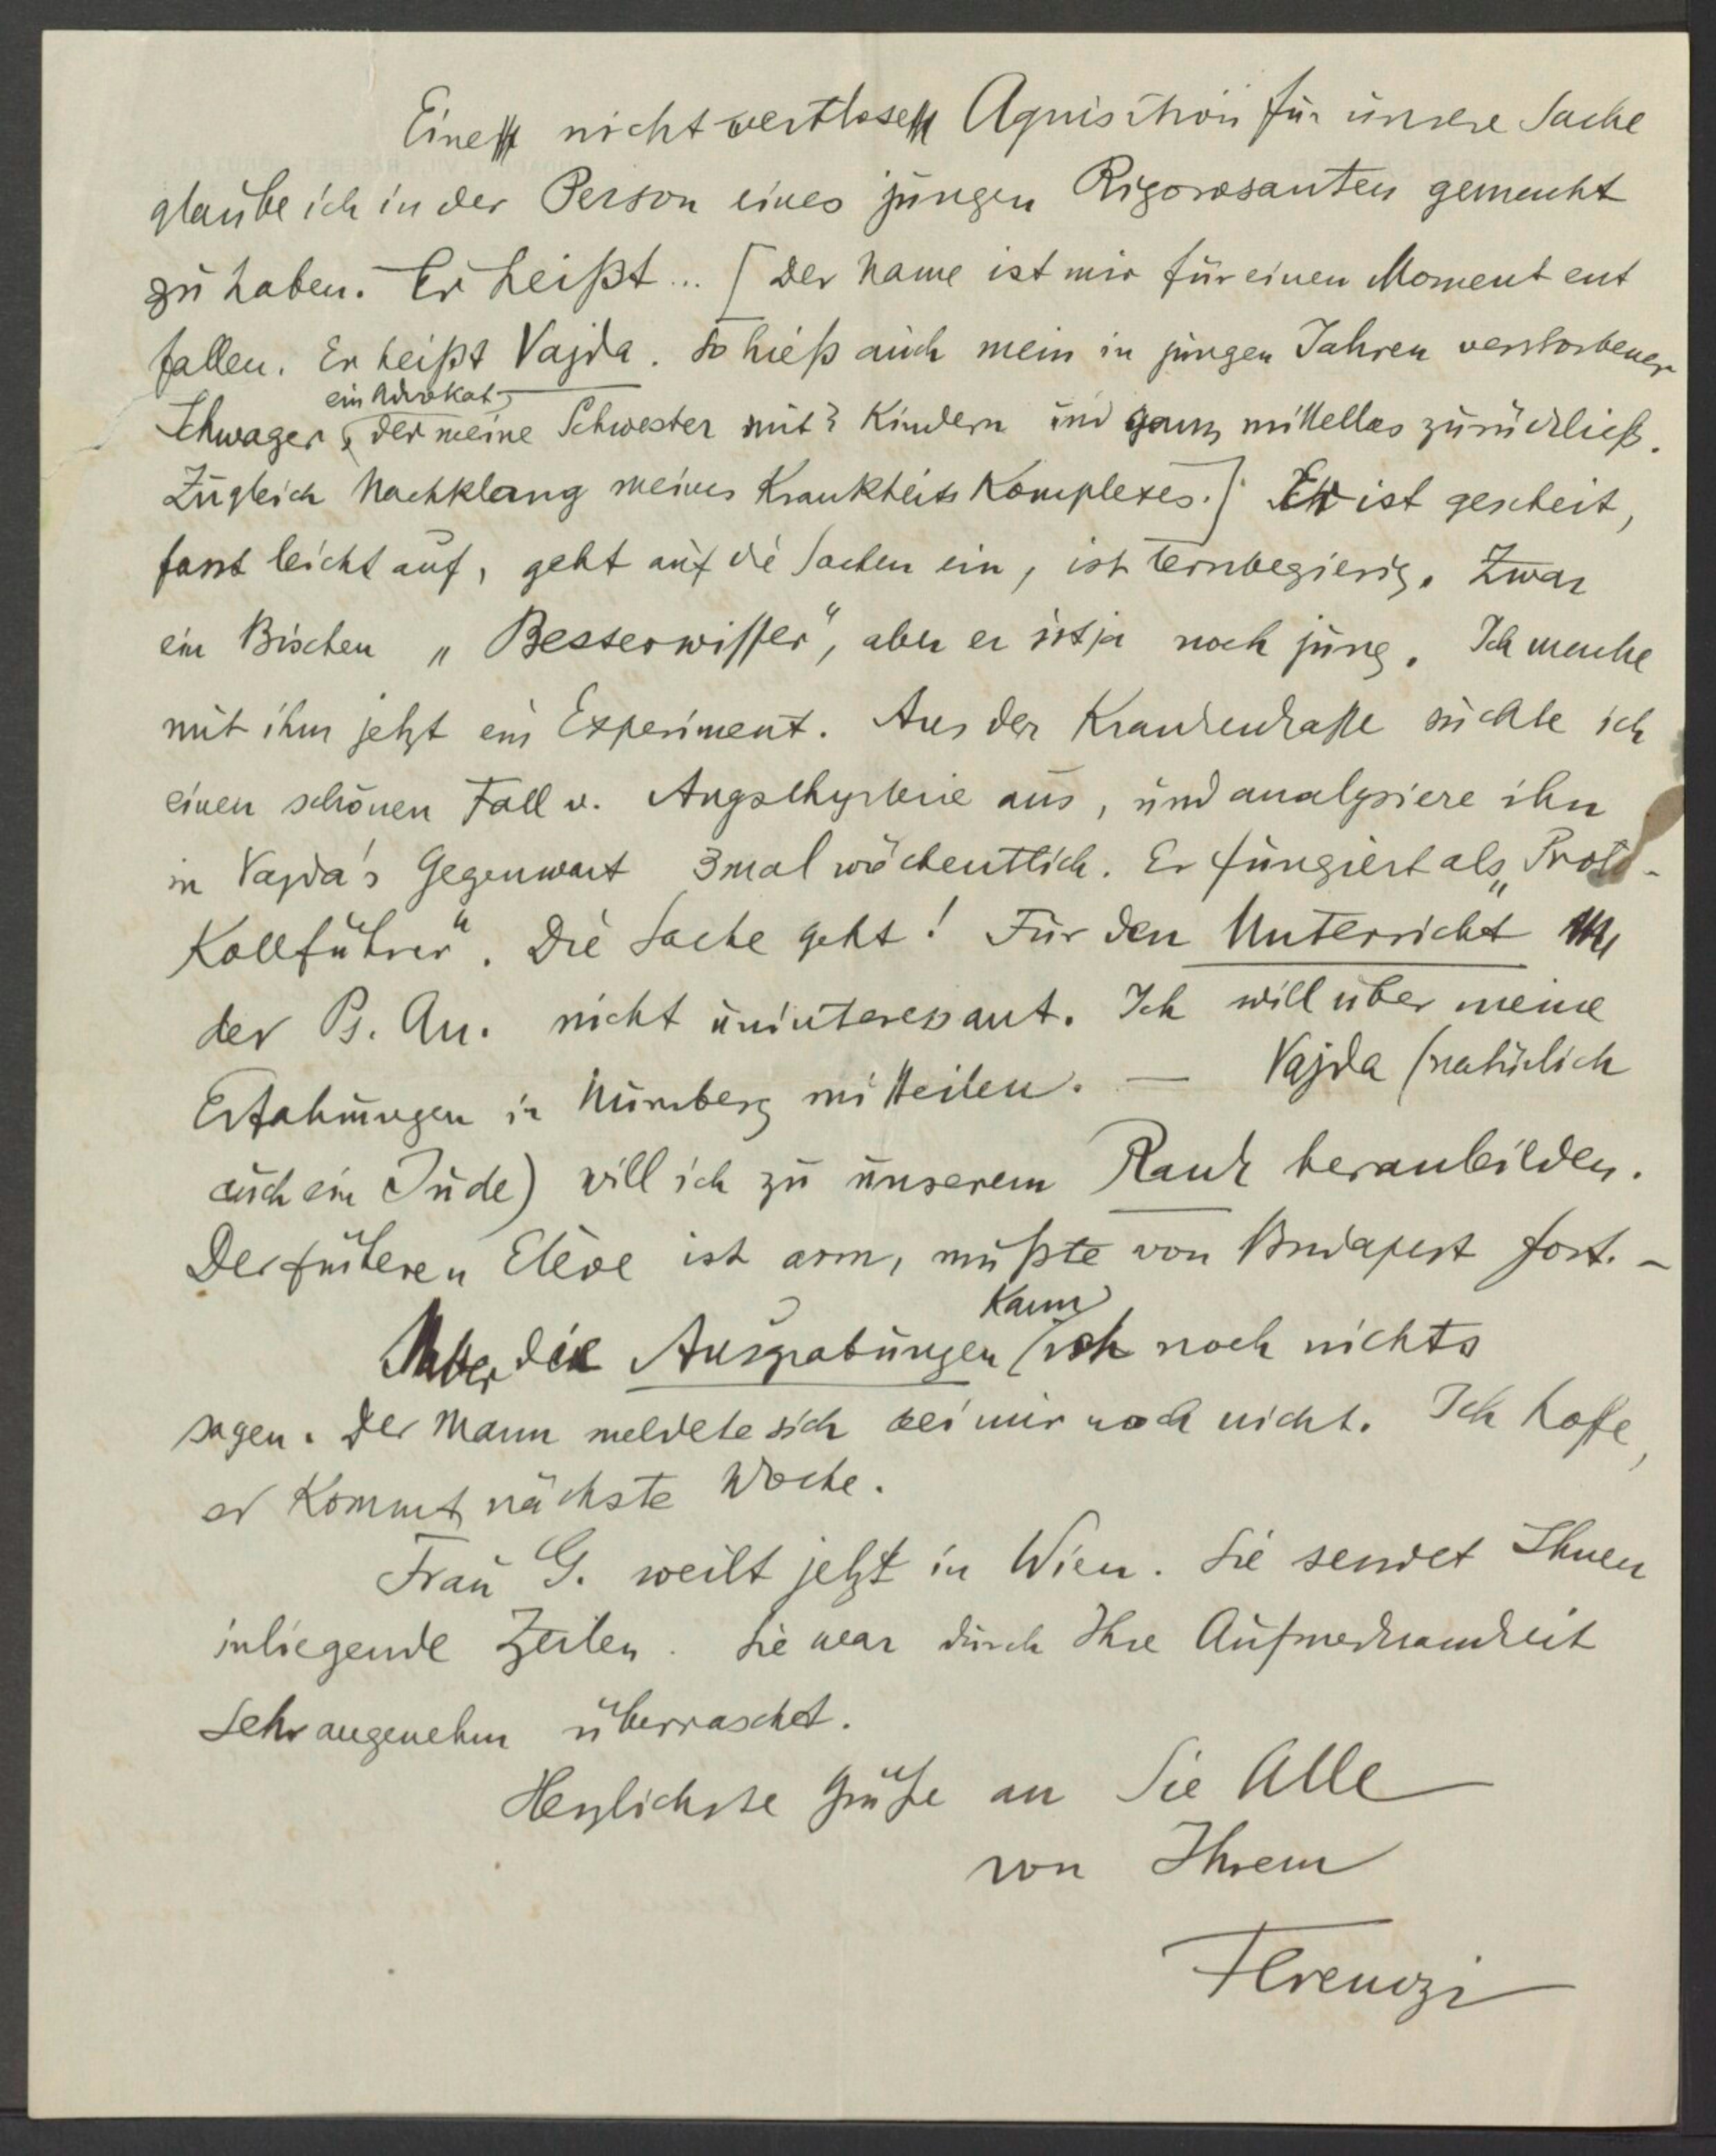 Eine nicht wertlose Aquisition für unsere Sache
glaube ich in der Person eines jungen Rigorosanten gemacht
zu haben. Er heißt... [Der Name ist mir für einen Moment ent
fallen. Er heißt Vajda. So hieß auch mein in jungen Jahren verstorbener
ein Advokat,
Schwager, der meine Schwester mit 3 Kindern und ganz mittellos zurückließ.
Zugleich Nachklang meines Krankheits Komplexes.] Er ist gescheit,
fasst leicht auf, geht auf die Sachen ein, ist lernbegierig. Zwar
ein Bischen „Besserwisser“, aber er ist ja noch jung. Ich mache
mit ihm jetzt ein Experiment. Aus der Krankenkasse suchte ich
einen schönen Fall v. Angsthysterie aus, und analysiere ihn
in Vajda's Gegenwart 3mal wöchentlich. Er fungiert als „Proto-
Kollführer“. Die Sache geht! Für den Unterricht
der Ps. An. nicht uninteressant. Ich will über meine
Erfahrungen in Nürnberg mitteilen. — Vajda (natürlich
auch ein Jude) will ich zu unserem Rank heranbilden.
Der früheren Elève ist arm, mußte von Budapest fort. –
Kann
Über die Ausgrabungen ich noch nichts
sagen. Der Mann meldete sich bei mir noch nicht. Ich hoffe,
er Kommt nächste Woche.
Frau G. weilt jetzt in Wien. Sie sendet Ihnen
inliegende Zeilen. Sie war durch Ihre Aufmerksamkeit
sehr angenehm überrascht.
Herzlichste Grüße an Sie Alle
von Ihrem
Ferenczi